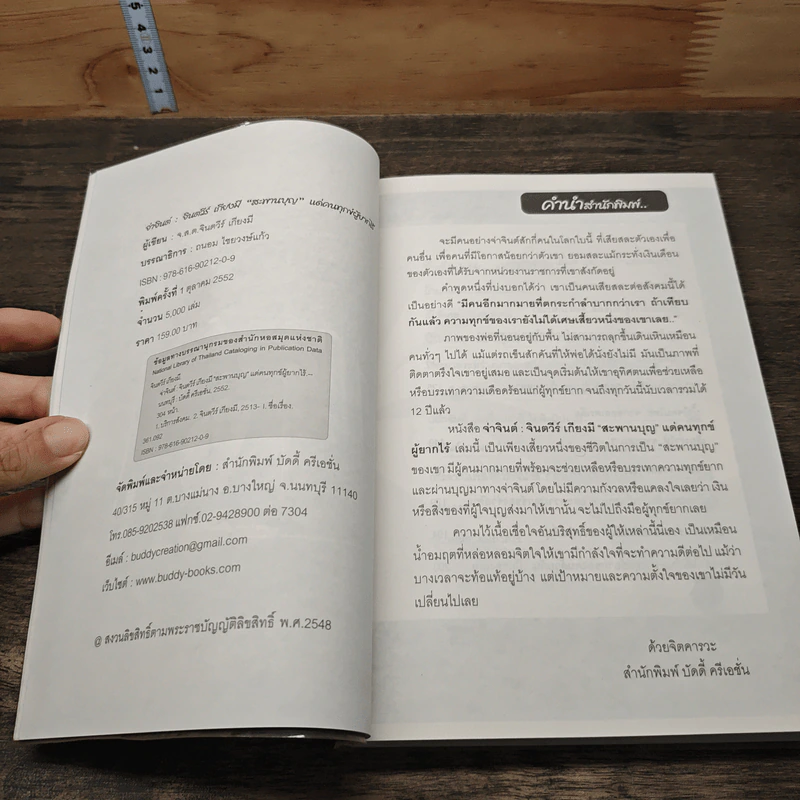 5 4 3 2 1
จ่าจินต์ : จินตวีร์ เกียงมี "สะพานบุญ" แด่คนทุกข์ผู้ยากไร้
ผู้เขียน : จ.ส.ต.จินตวีร์ เกียงมี
บรรณาธิการ : ถนอม ไชยวงษ์แก้ว
ISBN : 978-616-90212-0-9
พิมพ์ครั้งที่ 1 ตุลาคม 2552
จำนวน 5,000 เล่ม
ราคา 159.00 บาท
ข้อมูลทางบรรณานุกรมของสำนักหอสมุดแห่งชาติ
National Library of Thailand Cataloging in Publication Data
จินตวีร์ เกียงมี.
จ่าจินต์ : จินตวีร์ เกียงมี "สะพานบุญ" แด่คนทุกข์ผู้ยากไร้...
นนทบุรี : บัดดี้ ครีเอชั่น, 2552.
304 หน้า.
1. บริการสังคม. 2. จินตวีร์ เกียงมี, 2513- I. ชื่อเรื่อง.
361.092
ISBN : 978-616-90212-0-9
จัดพิมพ์และจำหน่ายโดย : สำนักพิมพ์ บัดดี้ ครีเอชั่น
40/315 หมู่ 11 ต.บางแม่นาง อ.บางใหญ่ จ.นนทบุรี 11140
โทร.085-9202538 แฟกซ์.02-9428900 ต่อ 7304
อีเมล์ : buddycreation@gmail.com
เว็บไซต์ : www.buddy-books.com
@ สงวนลิขสิทธิ์ตามพระราชบัญญัติลิขสิทธิ์ พ.ศ.2548
คำนำสำนักพิมพ์..
จะมีคนอย่างจ่าจินต์สักกี่คนในโลกใบนี้ ที่เสียสละตัวเองเพื่อ
คนอื่น เพื่อคนที่มีโอกาสน้อยกว่าตัวเขา ยอมสละแม้กระทั่งเงินเดือน
ของตัวเองที่ได้รับจากหน่วยงานราชการที่เขาสังกัดอยู่
คำพูดหนึ่งที่บ่งบอกได้ว่า เขาเป็นคนเสียสละต่อสังคมนี้ได้
เป็นอย่างดี "มีคนอีกมากมายที่ตกระกำลำบากกว่าเรา ถ้าเทียบ
กันแล้ว ความทุกข์ของเรายังไม่ได้เศษเสี้ยวหนึ่งของเขาเลย.."
ภาพของพ่อที่นอนอยู่กับพื้น ไม่สามารถลุกขึ้นเดินเหินเหมือน
คนทั่วๆ ไปได้ แม้แต่รถเข็นสักคันที่ให้พ่อได้นั่งยังไม่มี มันเป็นภาพที่
ติดตาตรึงใจเขาอยู่เสมอ และเป็นจุดเริ่มต้นให้เขาอุทิศตนเพื่อช่วยเหลือ
หรือบรรเทาความเดือดร้อนแก่ผู้ทุกข์ยาก จนถึงทุกวันนี้นับเวลารวมได้
12 ปีแล้ว
หนังสือ จ่าจินต์ : จินตวีร์ เกียงมี "สะพานบุญ" แด่คนทุกข์
ผู้ยากไร้ เล่มนี้ เป็นเพียงเสี้ยวหนึ่งของชีวิตในการเป็น "สะพานบุญ"
ของเขา มีผู้คนมากมายที่พร้อมจะช่วยเหลือหรือบรรเทาความทุกข์ยาก
และผ่านบุญมาทางจ่าจินต์ โดยไม่มีความกังวลหรือแคลงใจเลยว่า เงิน
หรือสิ่งของที่ผู้ใจบุญส่งมาให้เขานั้น จะไม่ไปถึงมือผู้ทุกข์ยากเลย
ความไว้เนื้อเชื่อใจอันบริสุทธิ์ของผู้ให้เหล่านี้นี่เอง เป็นเหมือน
น้ำอมฤตที่หล่อหลอมจิตใจให้เขามีกำลังใจที่จะทำความดีต่อไป แม้ว่า
บางเวลาจะท้อแท้อยู่บ้าง แต่เป้าหมายและความตั้งใจของเขาไม่มีวัน
เปลี่ยนไปเลย
ด้วยจิตคารวะ
สำนักพิมพ์ บัดดี้ ครีเอชั่น